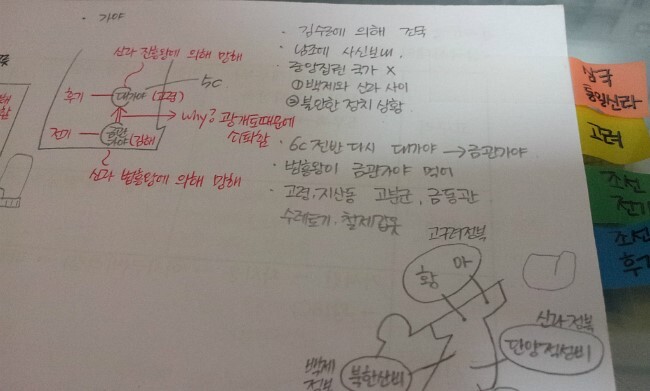 · 가야
신라 진흥왕에 의해 망해
5C
후기
대가야
(고령)
why? 광개토때문에
쇠퇴함
전기
금관
가야
(김해
신라 법흥왕에 의해 망해
· 김수로에 의해 건국
· 남조에 사신보내.
· 중앙집권 국가 X
① 백제와 신라 사이
② 불안한 정치 상황
· 6C 전반 다시 대가야 → 금관가야
· 법흥왕이 금관가야 먹어
· 고령, 지산동 고분군, 금동관
수레토기, 철제갑옷
고구려 정복
황
마
신라 정복
단양적성비
백제
정복
북한산비
삼국
통일신라
고려
조선
전기
조선
후기